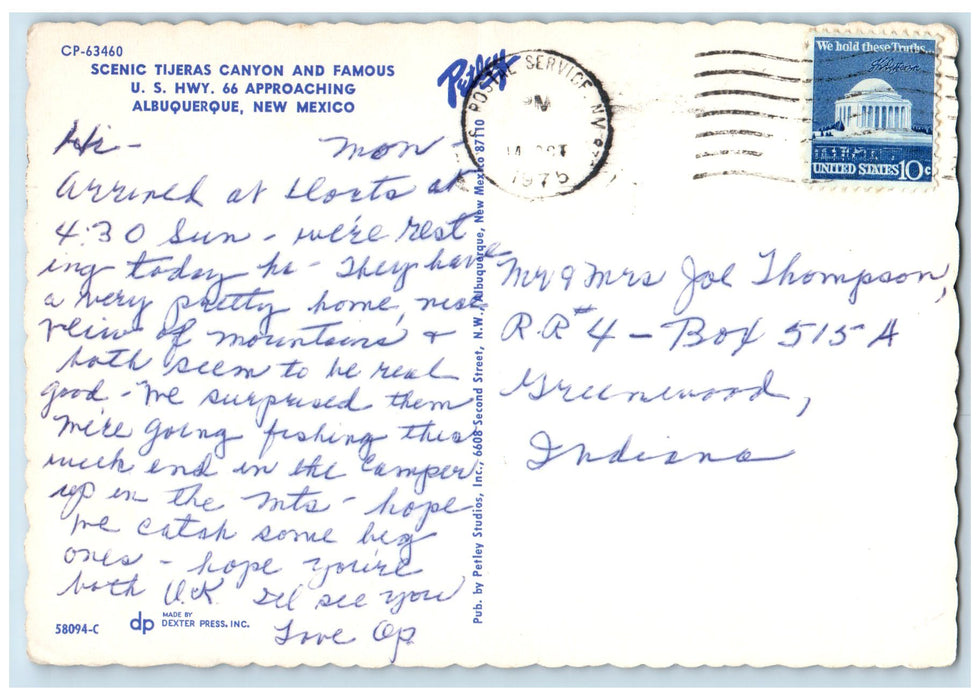 CP-63460
SCENIC TIJERAS CANYON AND FAMOUS
U. S. HWY. 66 APPROACHING
ALBUQUERQUE, NEW MEXICO
Petley
U.S. POSTAL SERVICE, NM
PM
14 OCT
1975
We hold these Truths...
UNITED STATES 10c
Hi - Mon -
Arrived at at
4:30 Sun - we're rest
ing today he - They have
a very pretty home, nice
view of mountains &
both seem to be real
good - We surprised them
We're going fishing this
week end in the Camper
up in the Mts - hope
we catch some big
ones - hope you're
both O.K. I'll see you
Love Op
Mr & Mrs Joe Thompson,
R.R.# 4 - Box 515 A
Greenwood,
Indiana
Pub. by Petley Studios, Inc., 6608 Second Street, N.W., Albuquerque, New Mexico 87110
58094-C
dp MADE BY
DEXTER PRESS, INC.